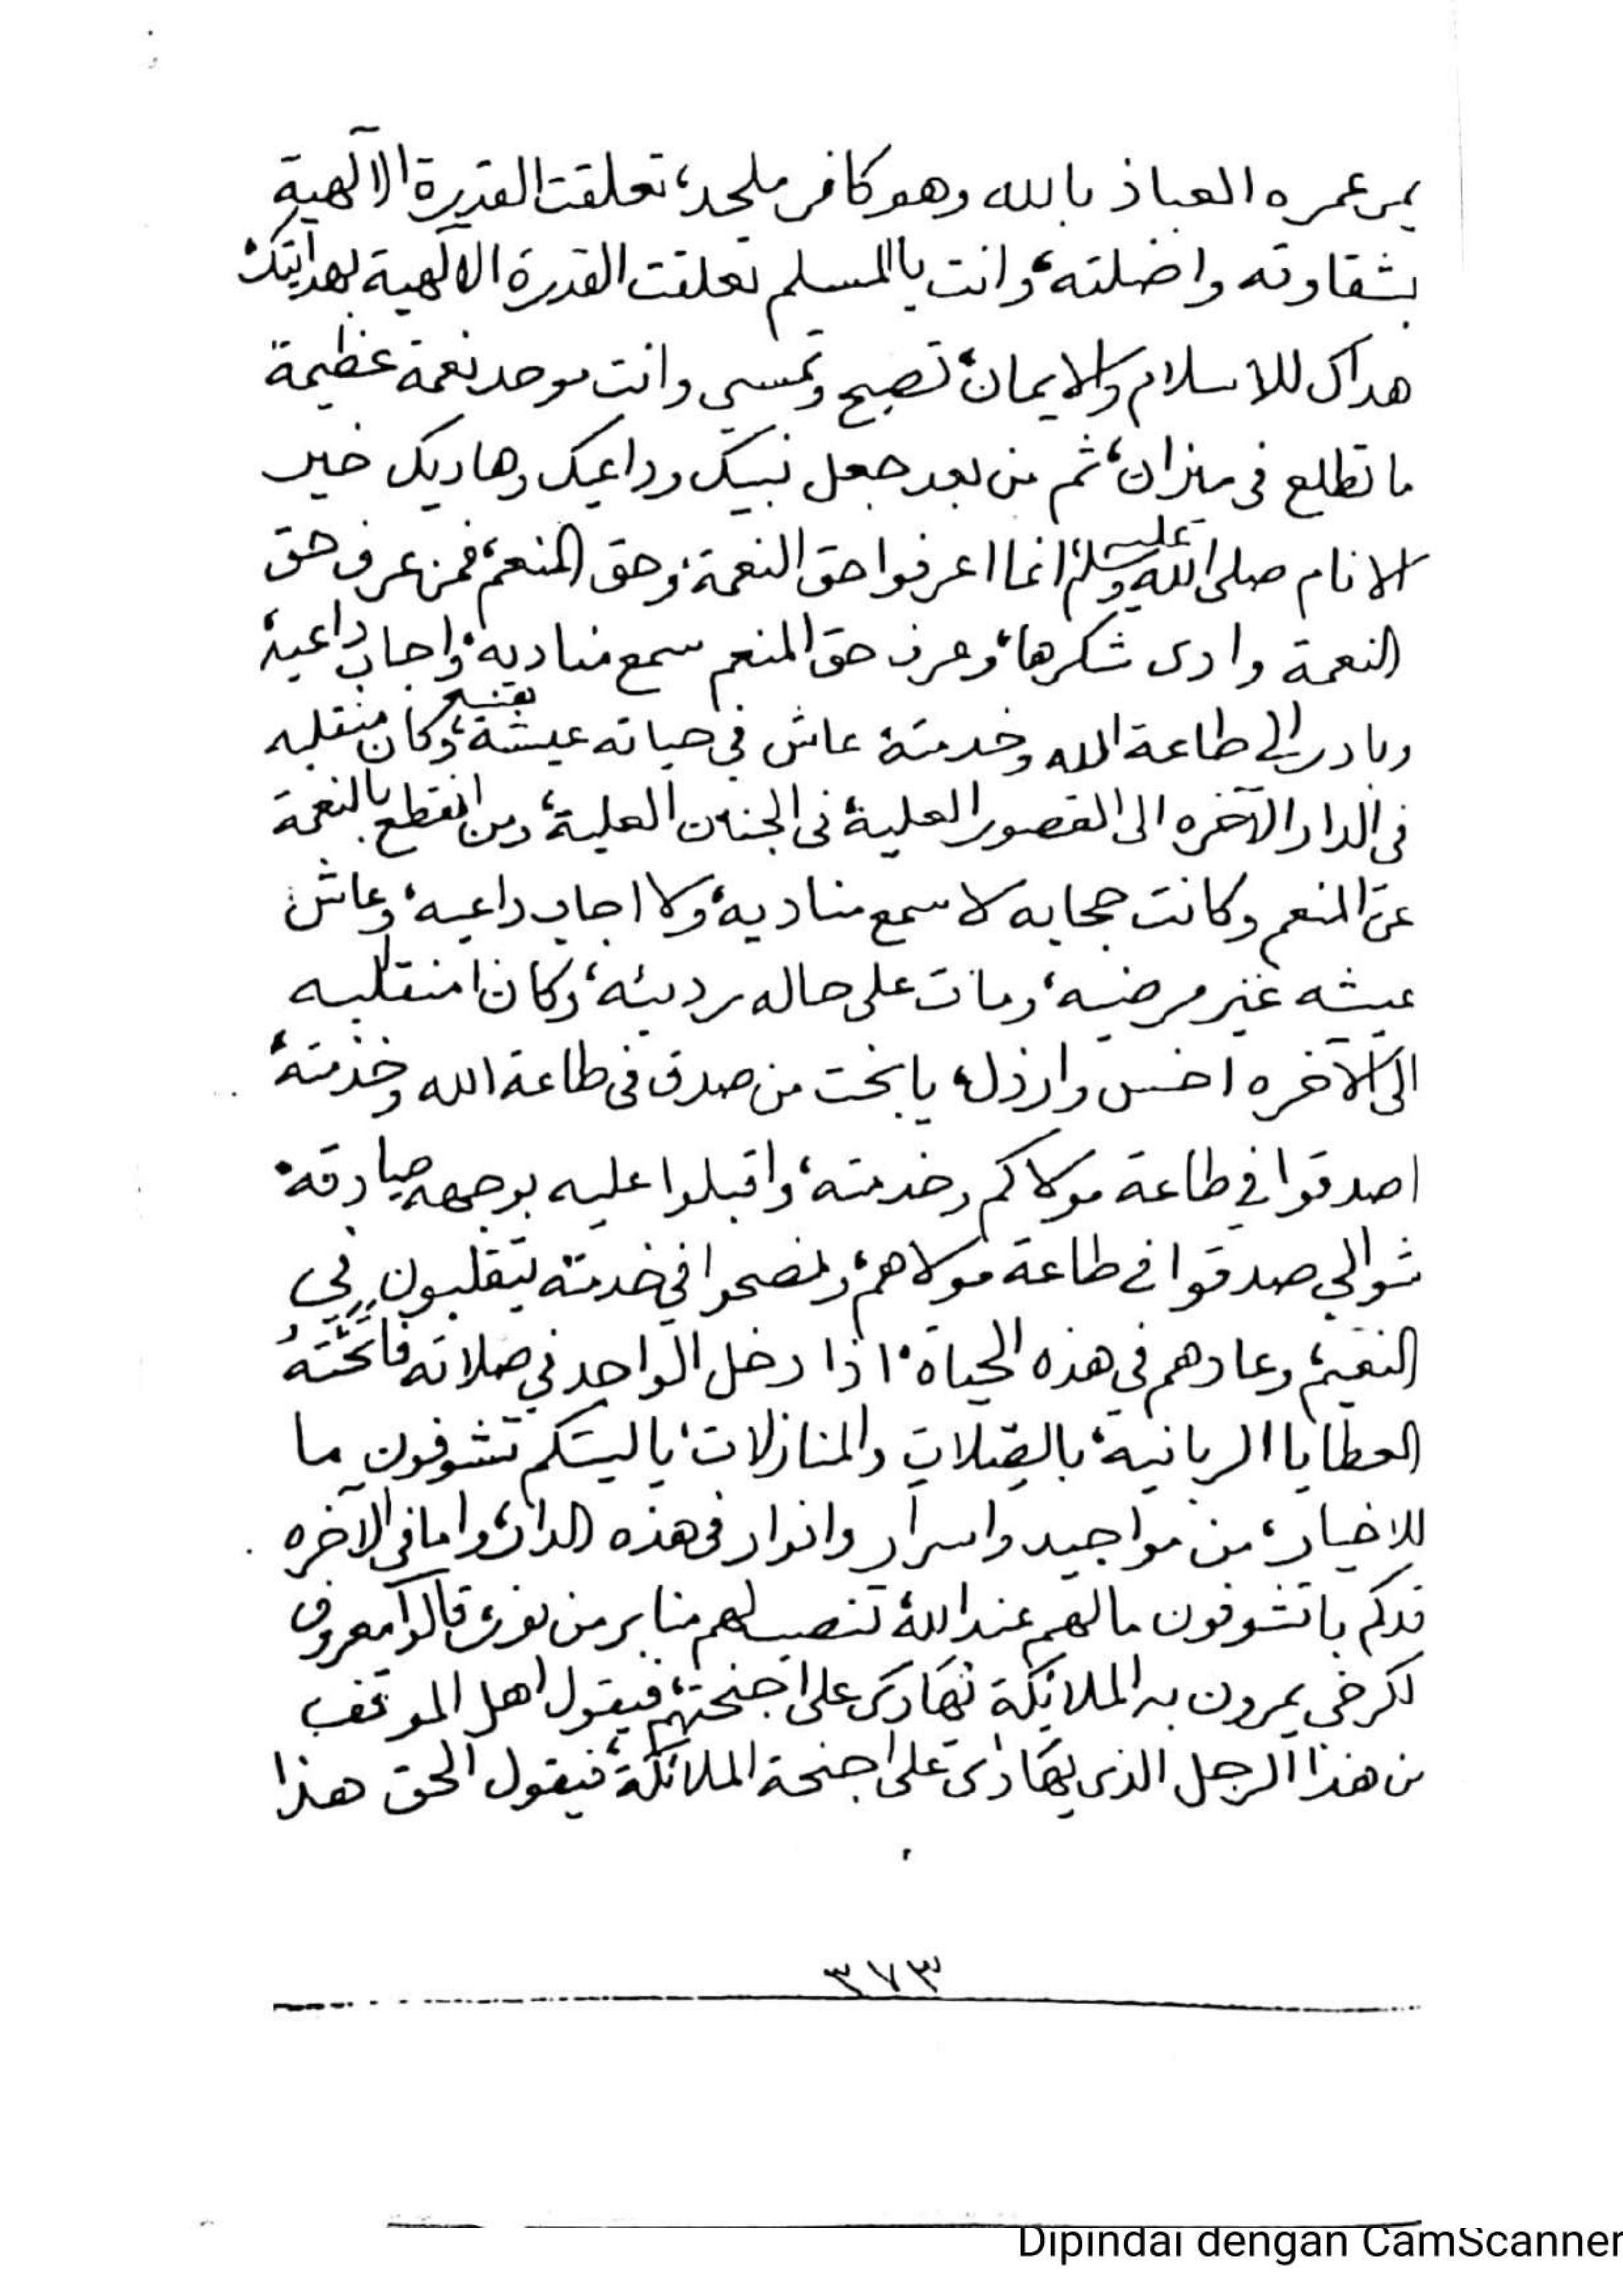 يمر عمره العياذ بالله وهو كافر ملحد، تعلقت القدرة الالهية
بشقاوته واضلته، وانت يالمسلم تعلقت القدرة الالهية بهدايتك،
هداك للاسلام والايمان، تصبح وتمسي وانت موحد نعمة عظيمة
ما تطلع في ميزان، ثم من بعد جعل نبيك وداعيك وهاديك خير
الانام صلى الله عليه وسلم، انما اعرفوا حق النعمة، وحق المنعم، فمن عرف حق
النعمة وادى شكرها، وعرف حق المنعم سمع مناديه، واجاب داعيه،
وبادر الى طاعة الله وخدمته عاش في حياته عيشة، وكان منقلبه
في الدار الآخره الى القصور العلية، في الجنان العلية، ومن انقطع بالنعمة
عن المنعم وكانت حجابه لا سمع مناديه، ولا اجاب داعيه، وعاش
عيشه غير مرضيه، ومات على حاله رديئه، وكان منقلبه
الى الآخره اخس وارذل، يا بخت من صدق في طاعة الله وخدمته،
اصدقوا في طاعة مولاكم وخدمته، واقبلوا عليه بوجهه صادقه،
شوالي صدقوا في طاعة مولاهم، ونصحوا في خدمته يتقلبون في
النعيم، وعادهم في هذه الحياة، اذا دخل الواحد في صلاته فاتحته
العطايا الربانية، بالصلات والمنازلات، ياليتكم تشوفون ما
للاخيار، من مواجيد واسرار وانوار في هذه الدار، واما في الآخره
قدكم باتشوفون مالهم عند الله، تنصب لهم منابر من نور، قالوا معروف
لكرخي يمرون به الملائكة تهادى على اجنحتهم، فيقول اهل الموقف
من هذا الرجل الذي يهادى على اجنحة الملائكة، فيقول الحق هذا
٣٧٣
Dipindai dengan CamScanner